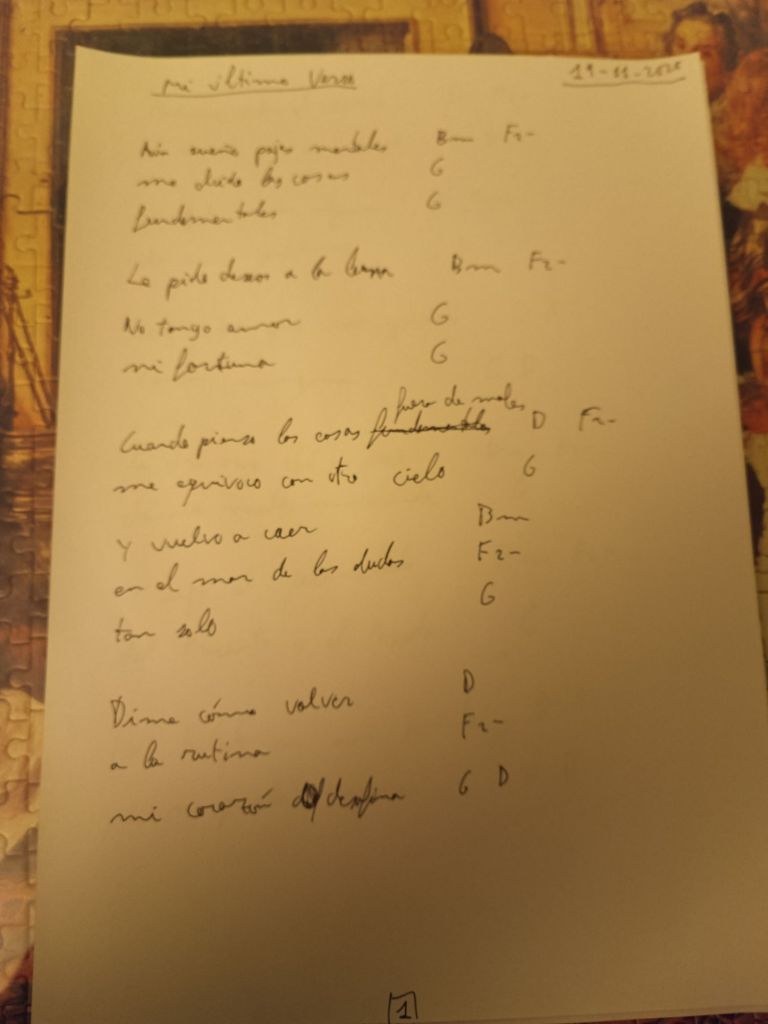 Mi último Verso 19-11-2025
Aún sueño pajas mentales Bm F2-
me olvido las cosas G
fundamentales G
Le pido deseos a la luna Bm F2-
No tengo amor G
mi fortuna G
fuera de males
Cuando pienso las cosas fundamentales D F2-
me equivoco con otro cielo G
Y vuelvo a caer Bm
en el mar de las dudas F2-
tan solo G
Dime cómo volver D
a la rutina F2-
mi corazón desafina G D
1